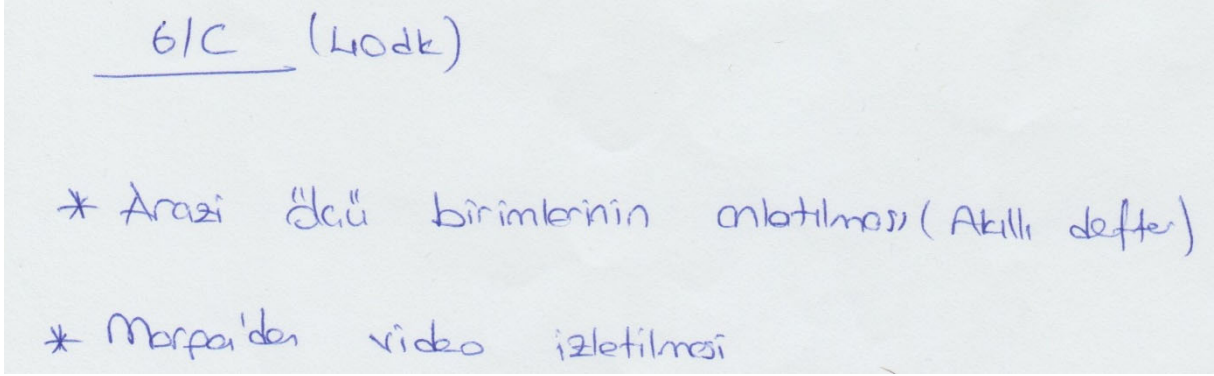 6/C (40dk)
* Arazi ölçü birimlerinin anlatılması (Akıllı defter)
* Morpa'dan video izletilmesi